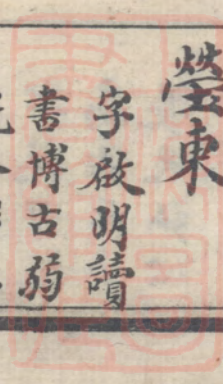 瑩東
字啟明讀
書博古弱